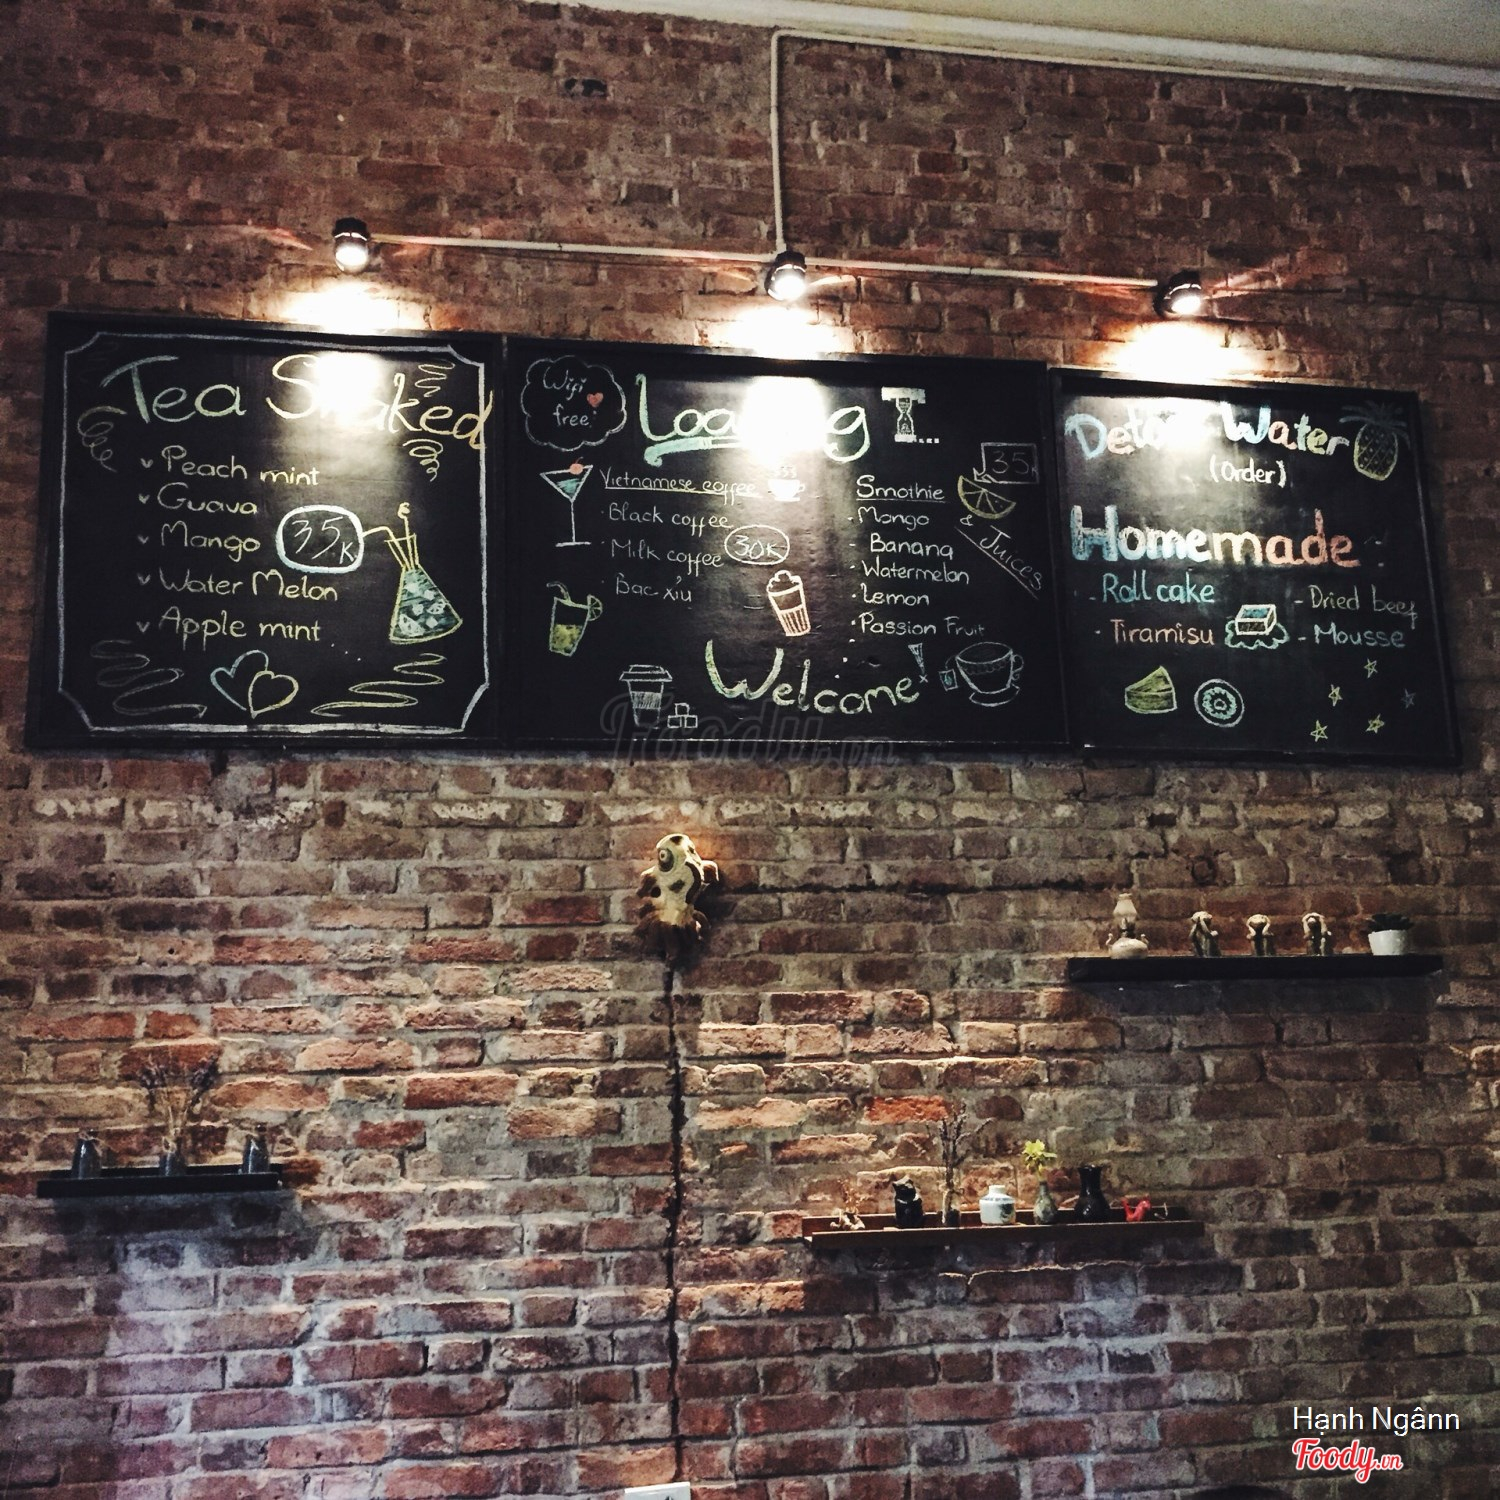 Tea Shaked
Peach mint
Guava
Mango
Water Melon
Apple mint
35K
Wifi
free
Loading T...
Vietnamese coffee
Black coffee
Milk coffee
Bạc xỉu
30K
Smothie
& Juices
35K
Mango
Banana
Watermelon
Lemon
Passion Fruit
Welcome!
Detox Water
(Order)
Homemade
- Roll cake
- Tiramisu
- Dried beef
- Mousse
Foody.vn
Hạnh Ngânn
Foody.vn